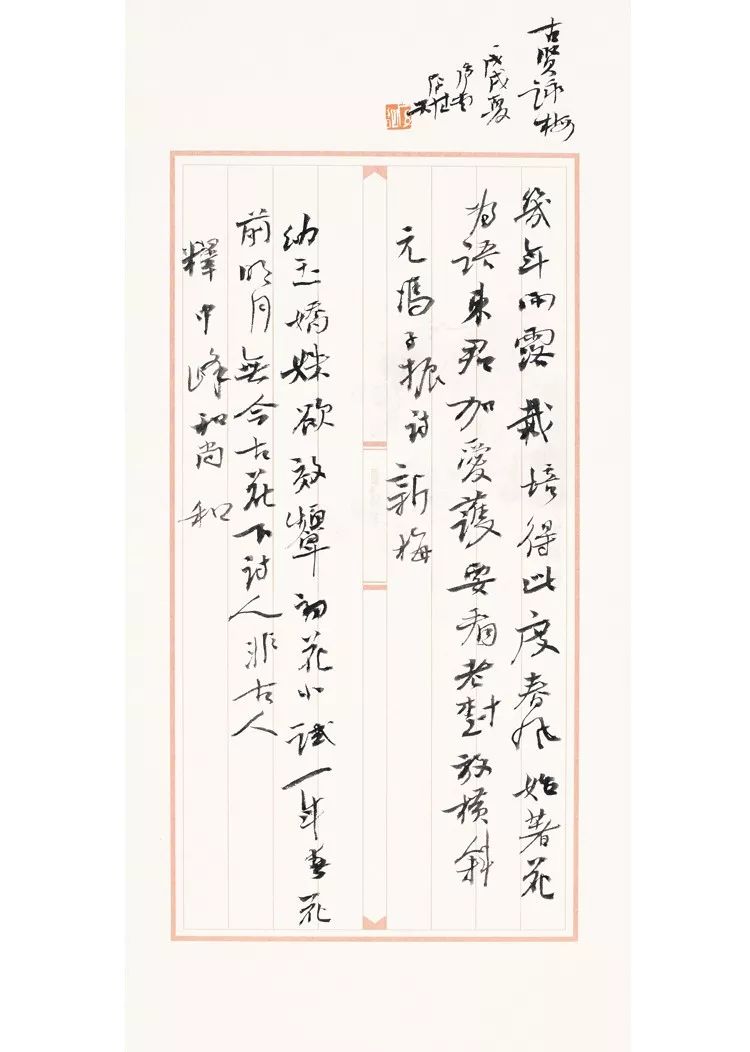 古贤詠梅
戊戌夏
幾年雨露栽培得此度春风始著花
为语東君加爱護要看老樹放横斜
元馮子振詩新梅
幼玉嬌姝欲效顰初花小試一年春花
前明月無今古花下詩人非古人
釋中峰和尚和